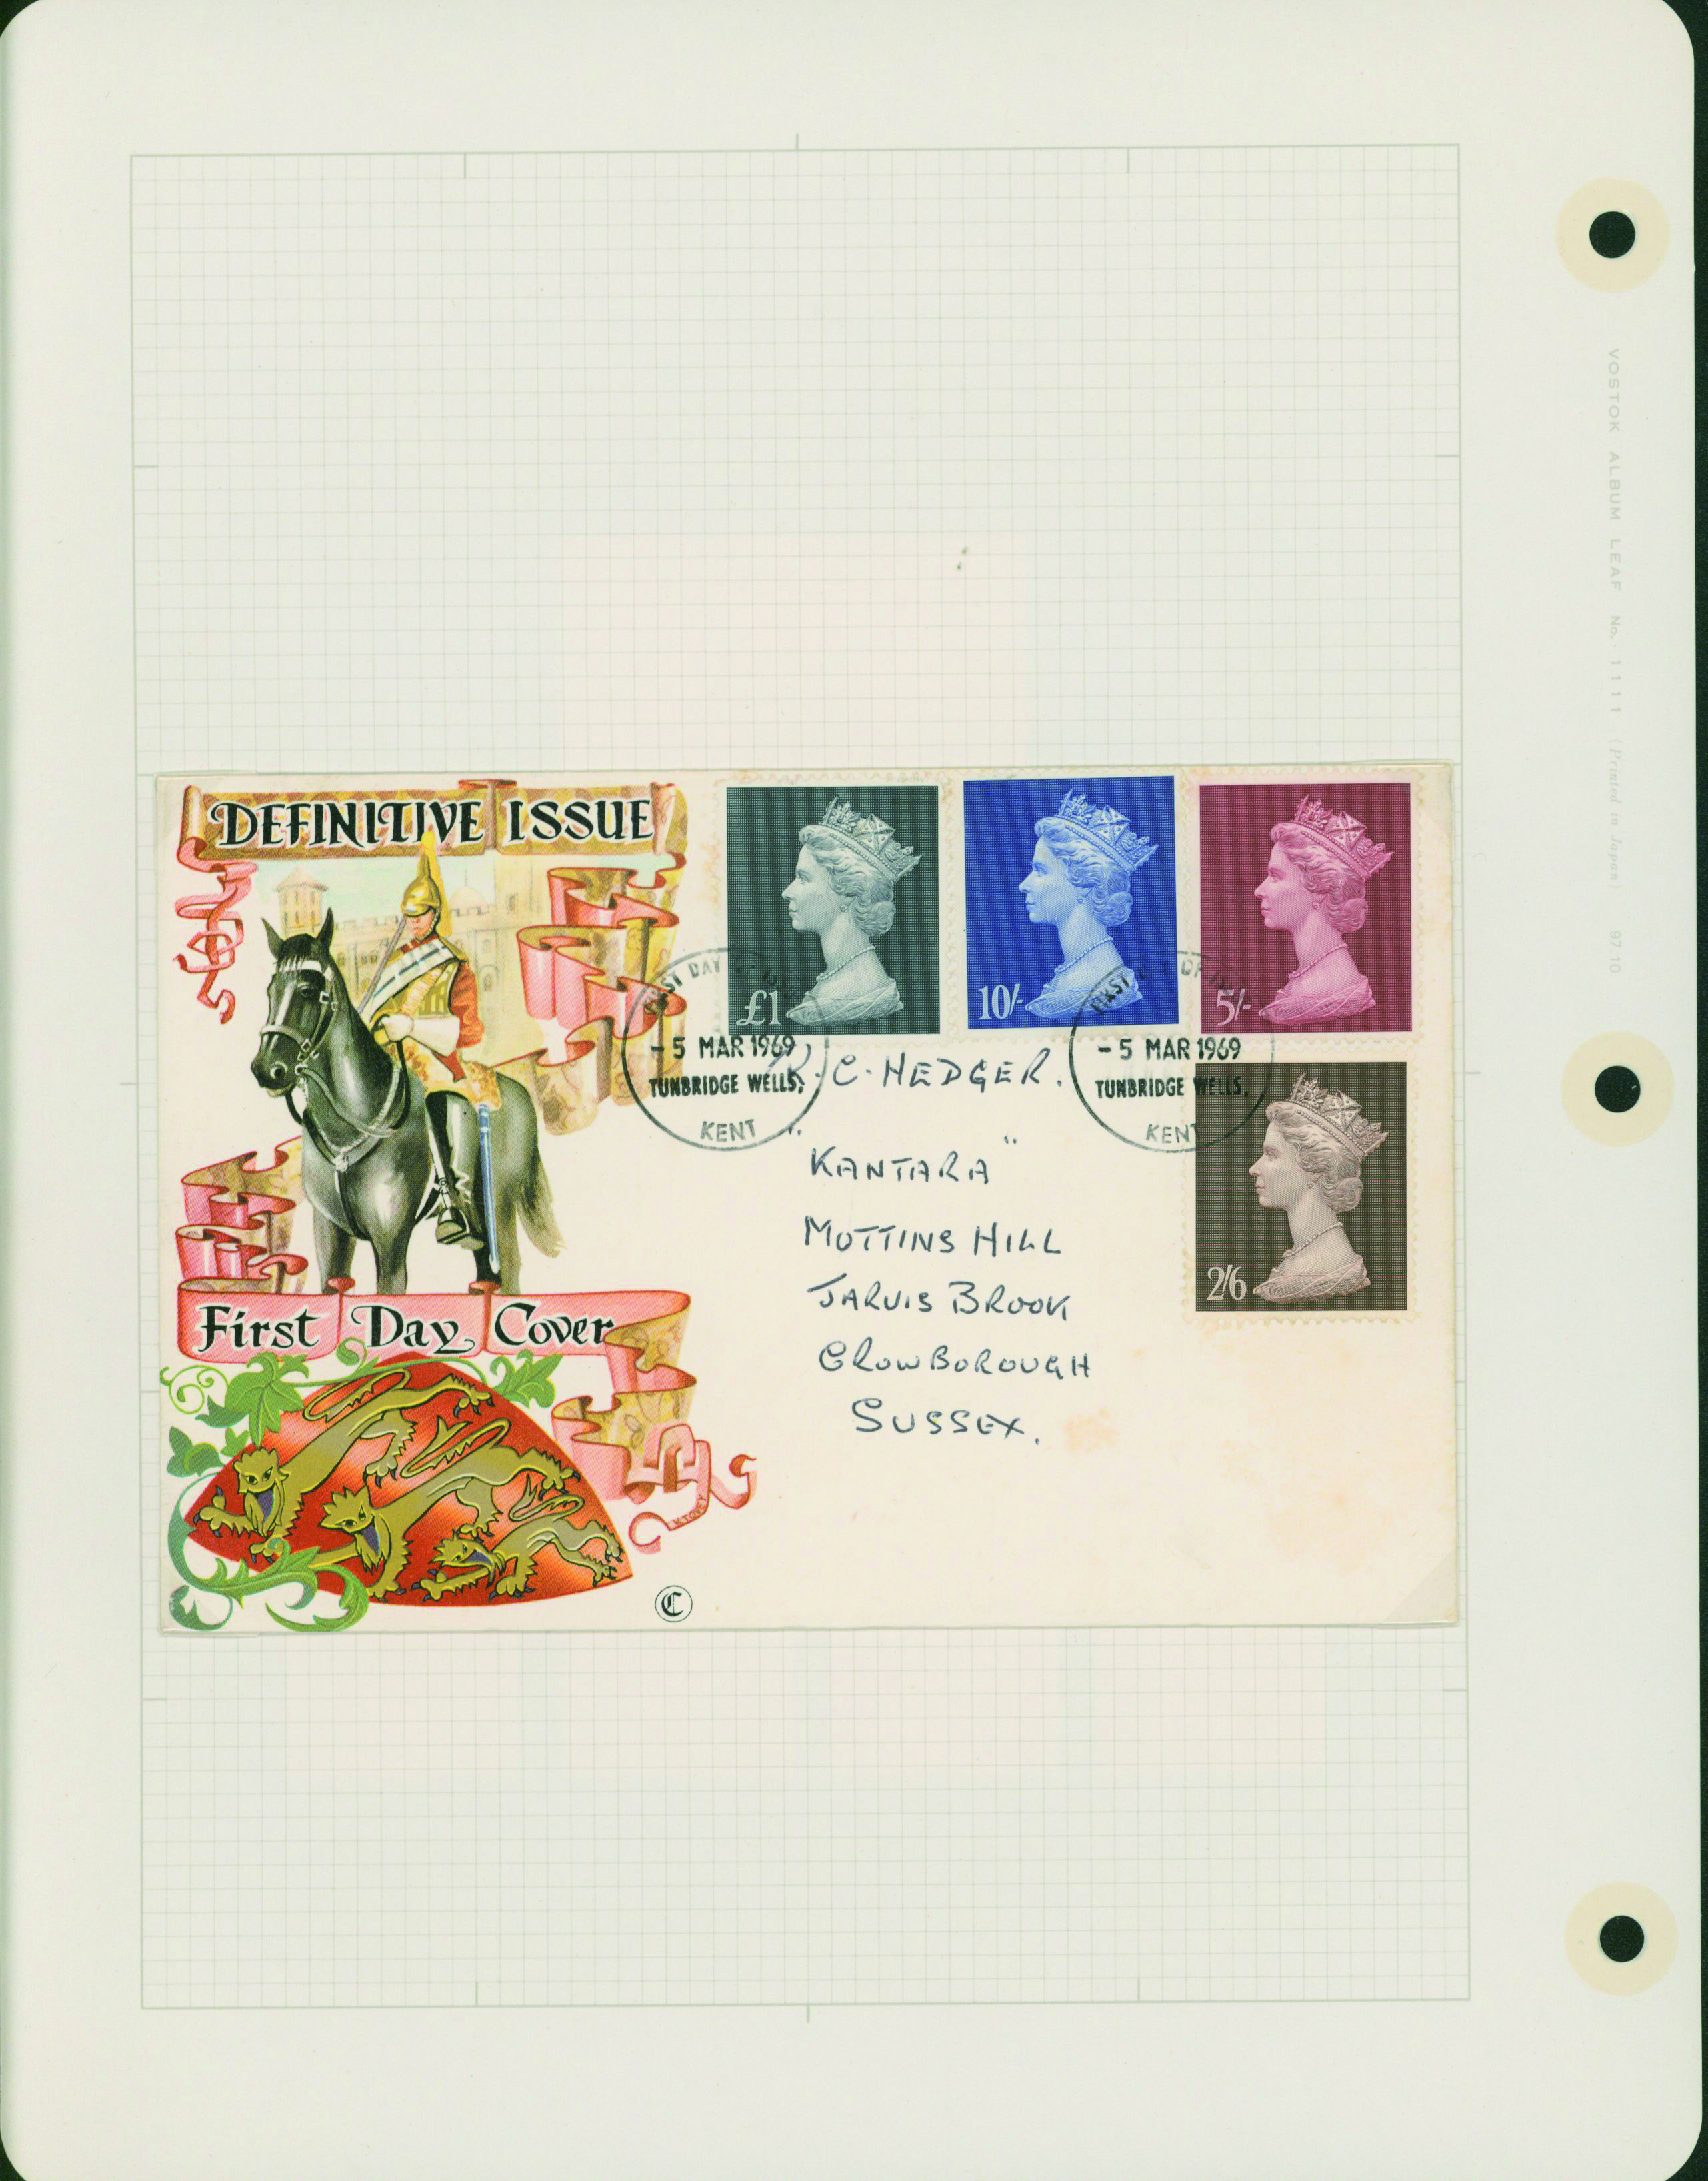 DEFINITIVE ISSUE
£1
10/-
5/-
2/6
FIRST DAY OF ISSUE
- 5 MAR 1969
TUNBRIDGE WELLS,
KENT
FIRST DAY OF ISSUE
- 5 MAR 1969
TUNBRIDGE WELLS,
KENT
R. C. HEDGER.
"KANTARA"
MOTTINS HILL
JARVIS BROOK
CROWBOROUGH
SUSSEX.
First Day Cover
K TOVEY
C
VOSTOK ALBUM LEAF No. 1111 (Printed in Japan) 97.10